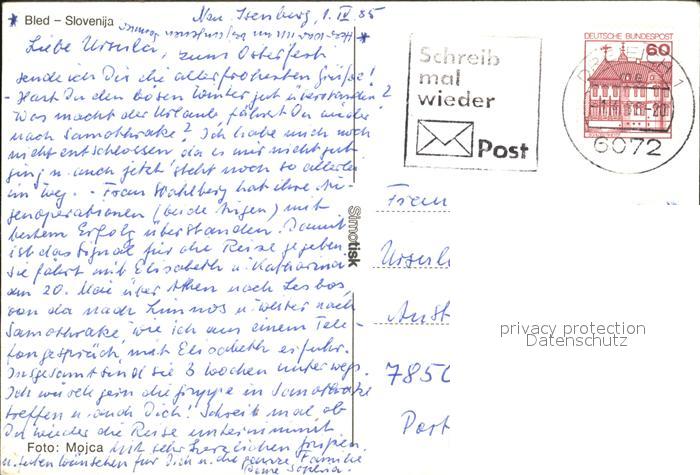 Bled – Slovenija
Neu Isenburg, 1. IV 85
Liebe Ursula, zum Osterfest
sende ich Dir die allerfrohesten Grüße!
- Hast Du den bösen Winter gut überstanden?
Was macht der Urlaub, fährst Du wieder
nach Samothrake? Ich habe mich noch
nicht entschlossen, da es mir nicht gut
ging u. auch jetzt steht noch so allerlei
im Weg. - Frau Wahlberg hat ihre Au-
genoperationen (beide Augen) mit
bestem Erfolg überstanden. Damit
ist das Signal für die Reise gegeben
Sie fährt mit Elisabeth u. Katharina
am 20. Mai über Athen nach Lesbos
von da nach Limnos u. weiter nach
Samothrake, wie ich aus einem Tele-
fongespräch mit Elisabeth erfuhr.
Insgesamt sind sie 3 Wochen unterwegs.
Ich würde gern die Gruppe in Samothrake
treffen u. auch Dich! Schreib mal, ob
Du wieder die Reise unternimmst
Mit sehr herzlichen Grüßen
u. guten Wünschen für Dich u. die ganze Familie
Deine
Foto: Mojca
Simotisk
Schreib
mal
wieder
Post
DEUTSCHE BUNDESPOST
60
DREIEICH 1
6072
Frau
Ursula
Aust
7850
Post
privacy protection
Datenschutz